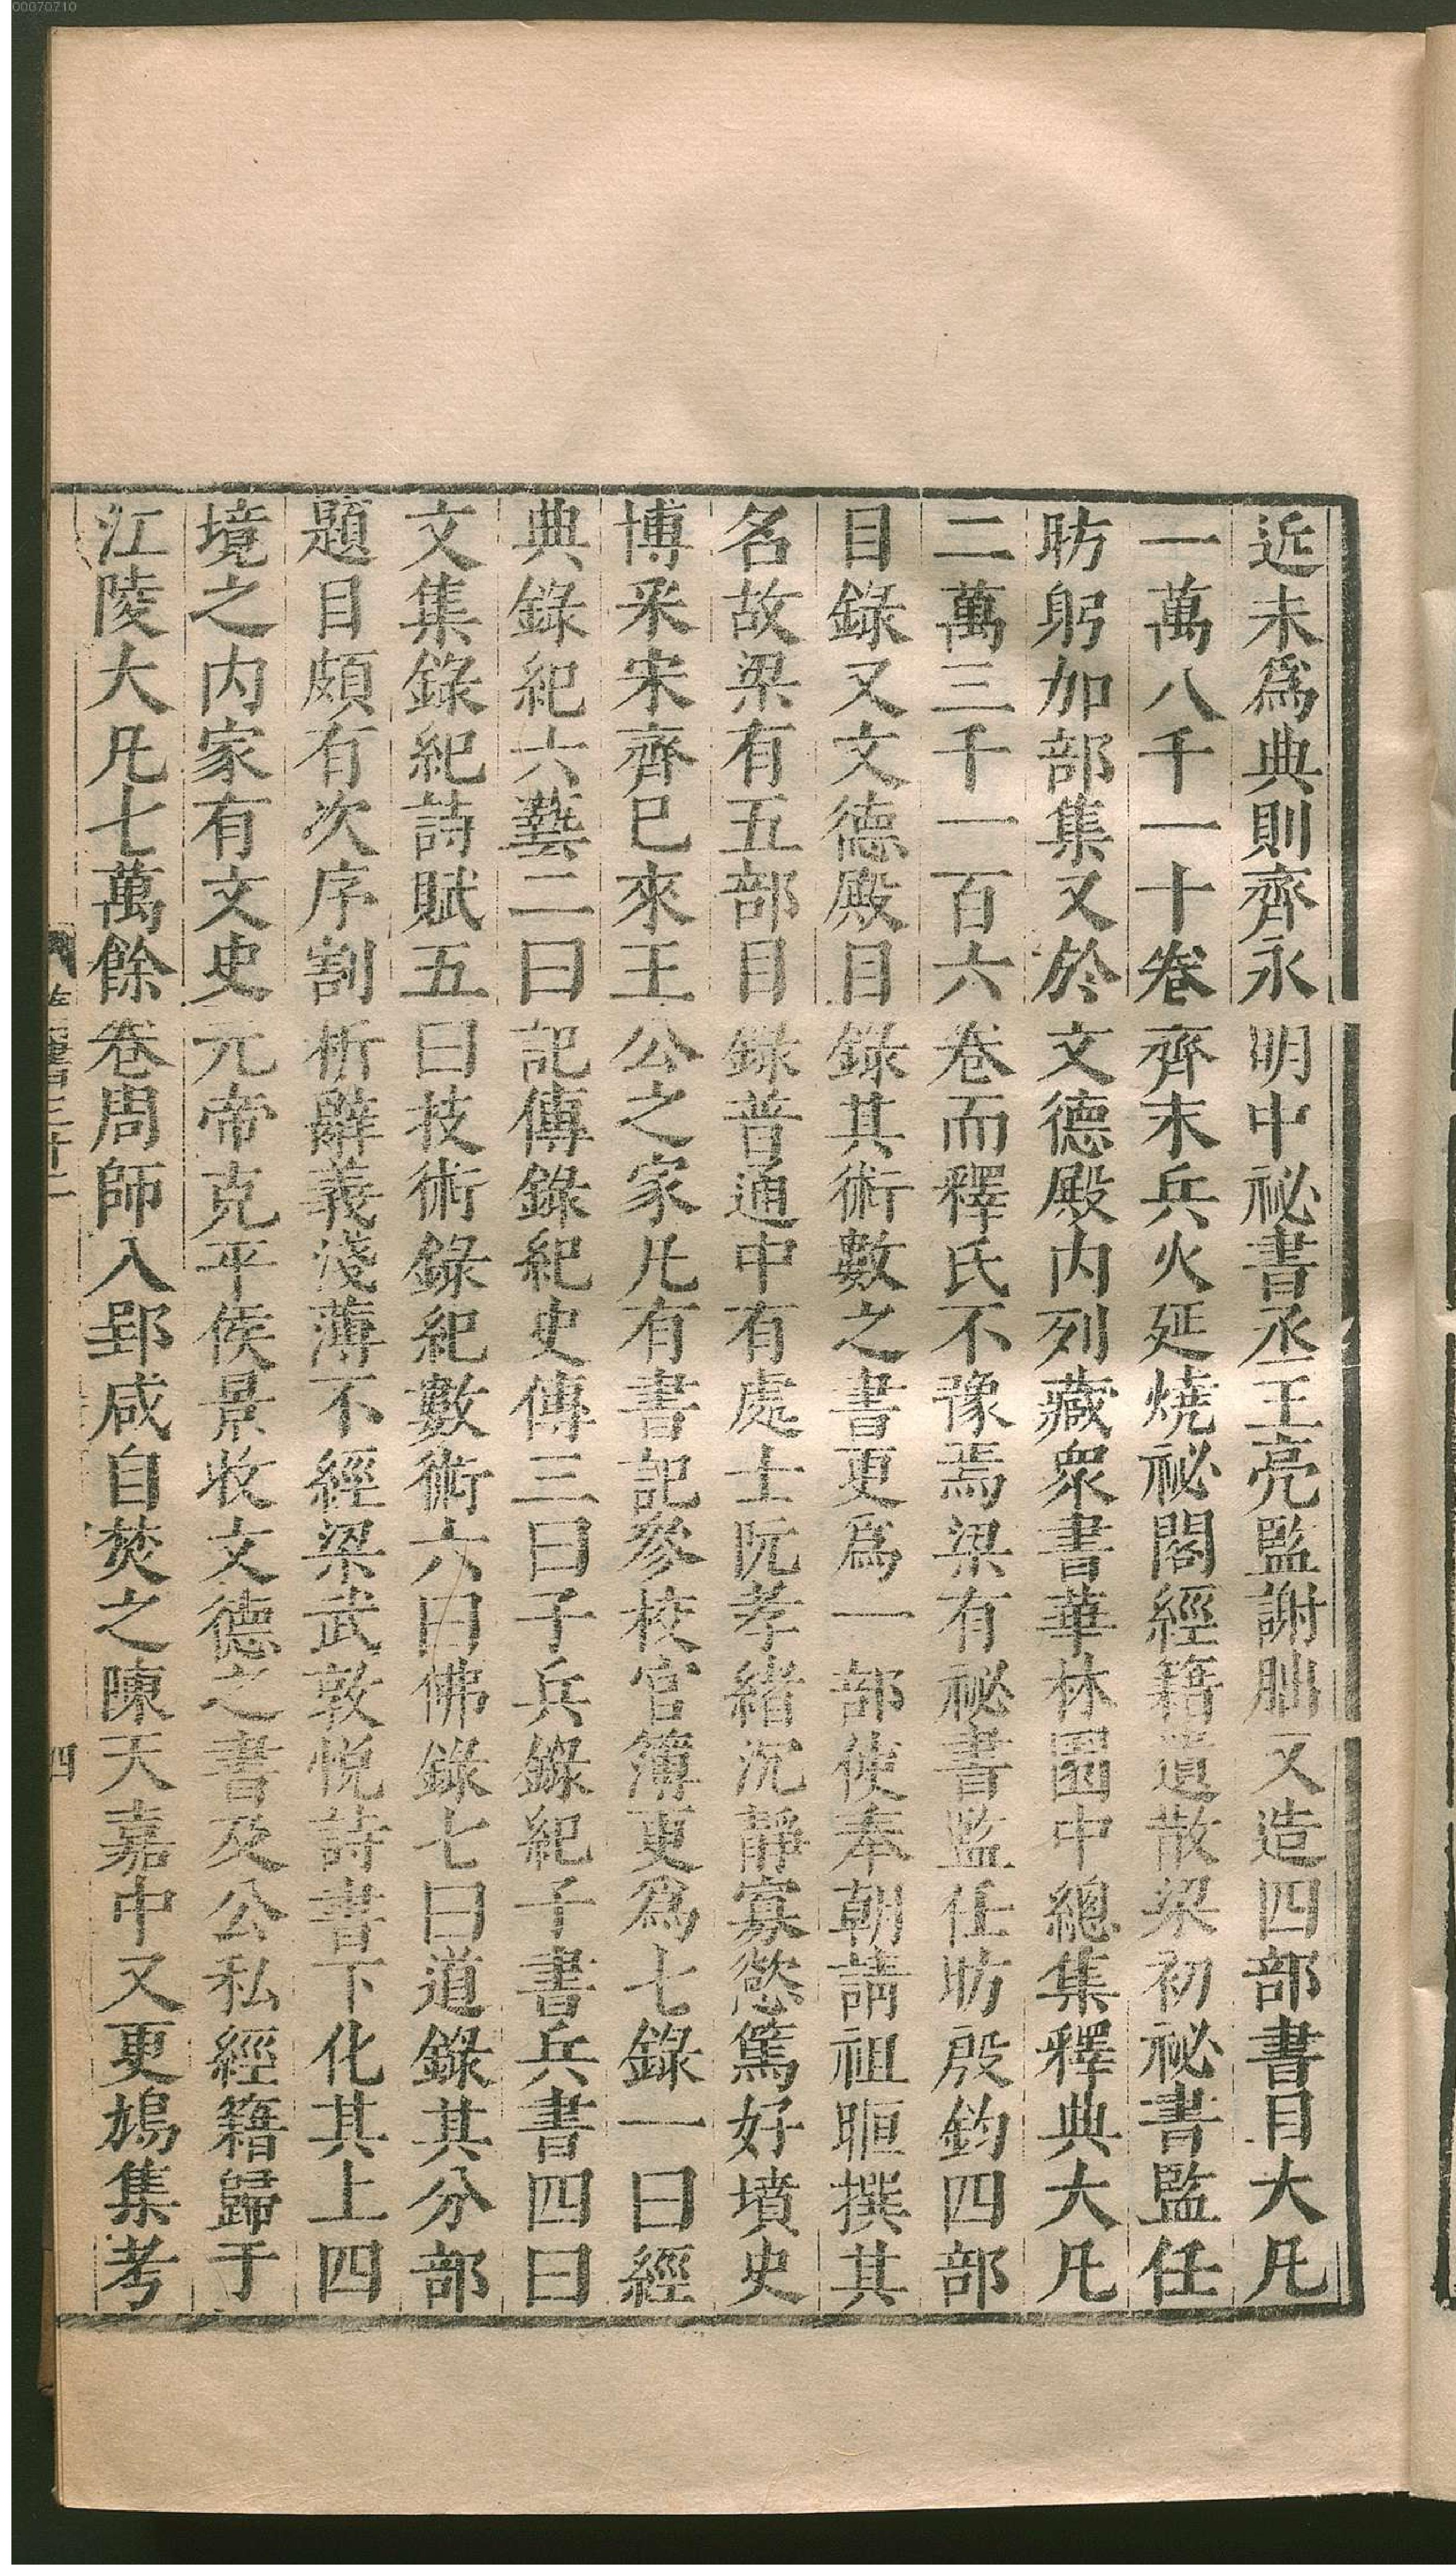 00070710
近未爲典則齊永明中祕書丞王亮監謝朏又造四部書目大凡
一萬八千一十卷齊末兵火延燒祕閣經籍遺散梁初祕書監任
昉躬加部集又於文德殿内列藏衆書華林園中總集釋典大凡
二萬三千一百六卷而釋氏不豫焉梁有祕書監任昉殷鈞四部
目錄又文德殿目錄其術數之書更爲一部使奉朝請祖暅撰其
名故梁有五部目錄普通中有處士阮孝緒沉靜寡慾篤好墳史
博采宋齊已來王公之家凡有書記參校官簿更爲七錄一曰經
典錄紀六藝二曰記傳錄紀史傳三曰子兵錄紀子書兵書四曰
文集錄紀詩賦五曰技術錄紀數術六曰佛錄七曰道錄其分部
題目頗有次序割析辭義淺薄不經梁武敦悅詩書下化其上四
境之内家有文史元帝克平侯景收文德之書及公私經籍歸于
江陵大凡七萬餘卷周師入郢咸自焚之陳天嘉中又更鳩集考
四